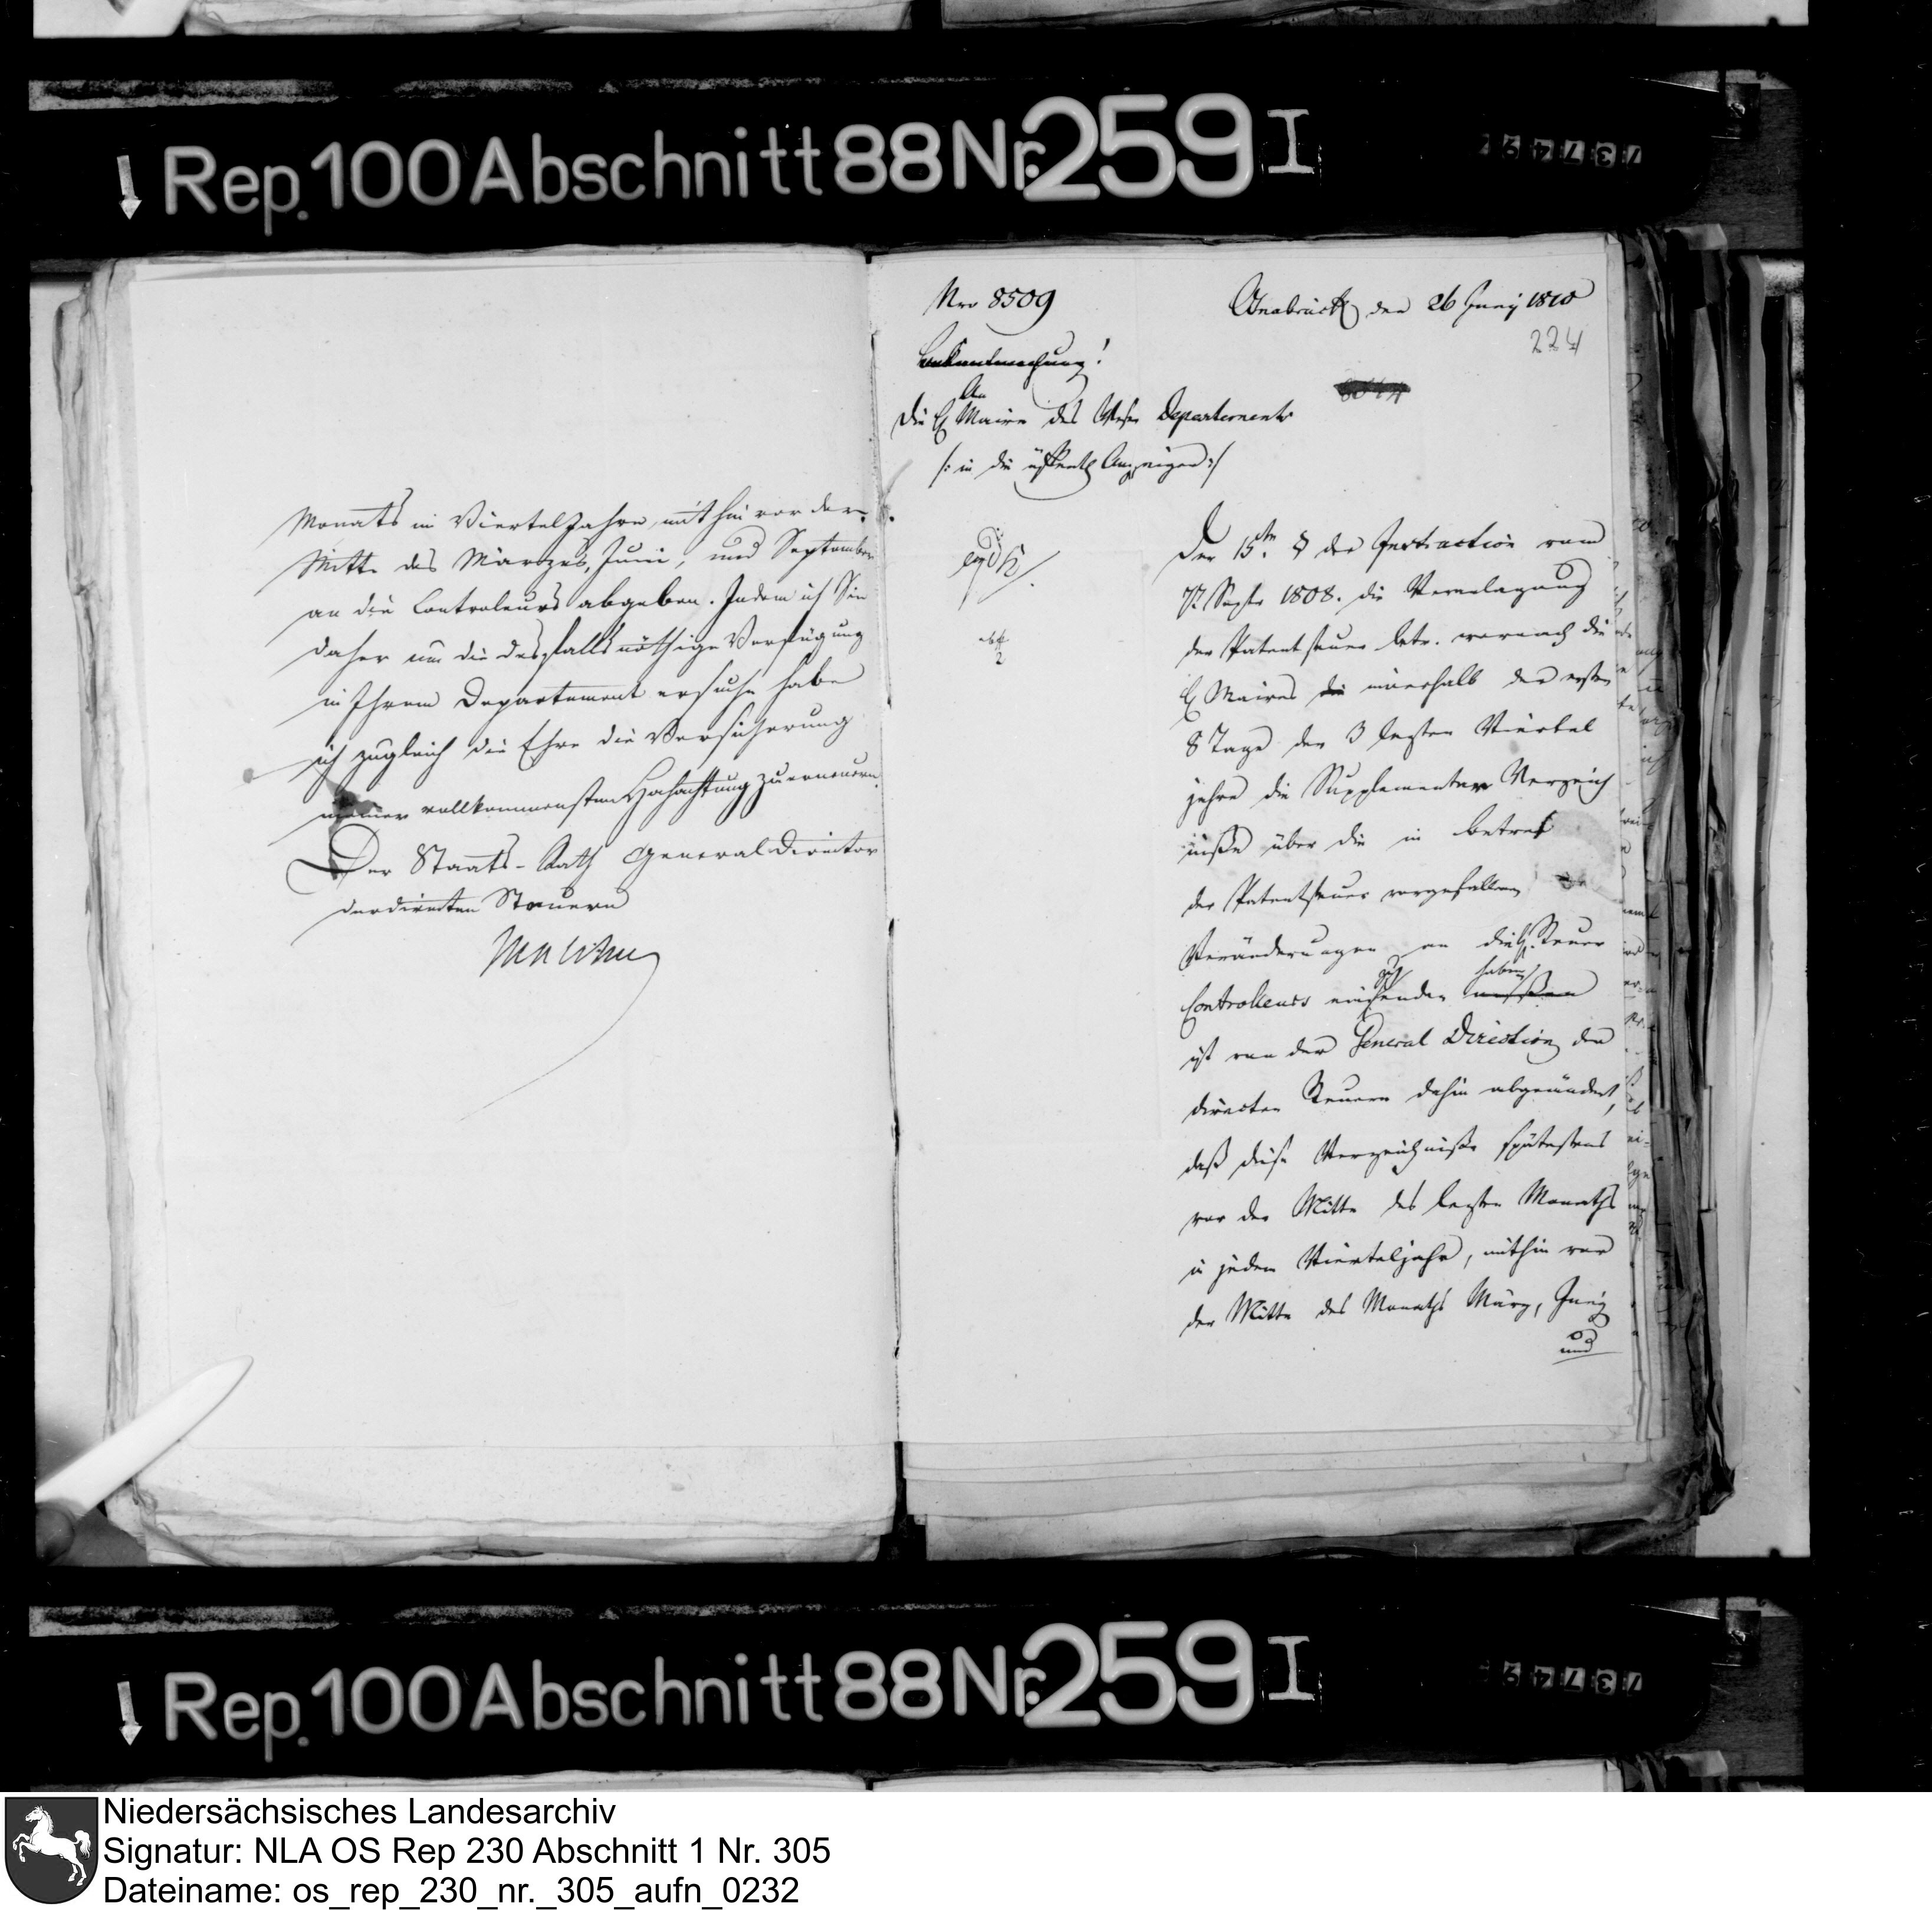 Rep. 100 Abschnitt 88 Nr. 259 I
Monats im Vierteljahre, mithin vor der
Mitte des Märzes, Juni, und September
an die Controleurs abgeben. Indem ich Sie
daher um die desfalls nöthige Verfügung
in Ihrem Departement ersuche habe
ich zugleich die Ehre die Versicherung
meiner vollkommensten Hochachtung zu erneuern.
Der Staats-Rath General Director
der directen Steuern
Malchus
Nro 8509
Osnabrück den 26 Juny 1810
224
Bekanntmachung!
An
die H Maire des Weser Departements
/: in die öffentl Anzeigen :/
Der 15te § der Instruction vom
Septr 1808. die Veranlagung
der Patentsteuer betr. wornach die
H Maires die innerhalb der ersten
8 Tage der 3 letzten Viertel
jahre die Supplementar Verzeich
niße über die in betref
der Patentsteuer vorgefallen
Veränderungen an die H. Steuer
haben
Controlleurs einsenden müßen
ist von der General Direction der
directen Steuern dahin abgeändert,
daß diese Verzeichniße spätestens
vor der Mitte des letzten Monaths
in jedem Vierteljahr, mithin vor
der Mitte des Monaths März, Juny
und
Rep. 100 Abschnitt 88 Nr. 259 I
Niedersächsisches Landesarchiv
Signatur: NLA OS Rep 230 Abschnitt 1 Nr. 305
Dateiname: os_rep_230_nr._305_aufn_0232